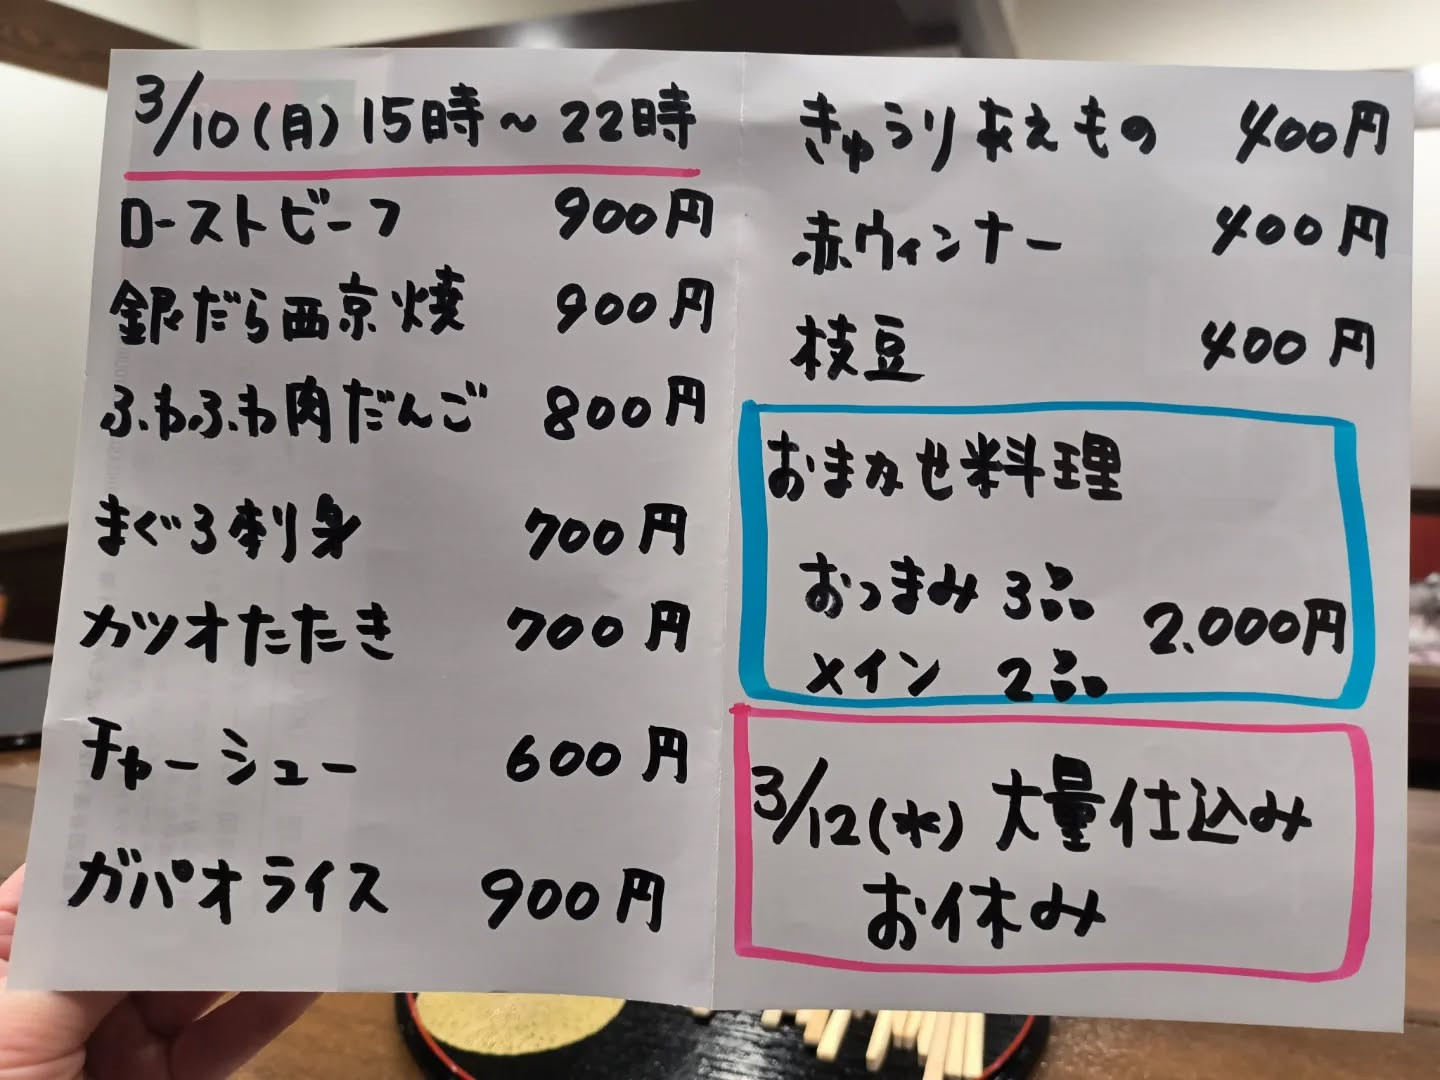 3/10(月)15時～22時
ローストビーフ 900円
銀だら西京焼 900円
ふわふわ肉だんご 800円
まぐろ刺身 700円
カツオたたき 700円
チャーシュー 600円
ガパオライス 900円
きゅうりあえもの 400円
赤ウィンナー 400円
枝豆 400円
おまかせ料理
おつまみ 3品
2.000円
メイン 2品
3/12(水) 大量仕込み
お休み